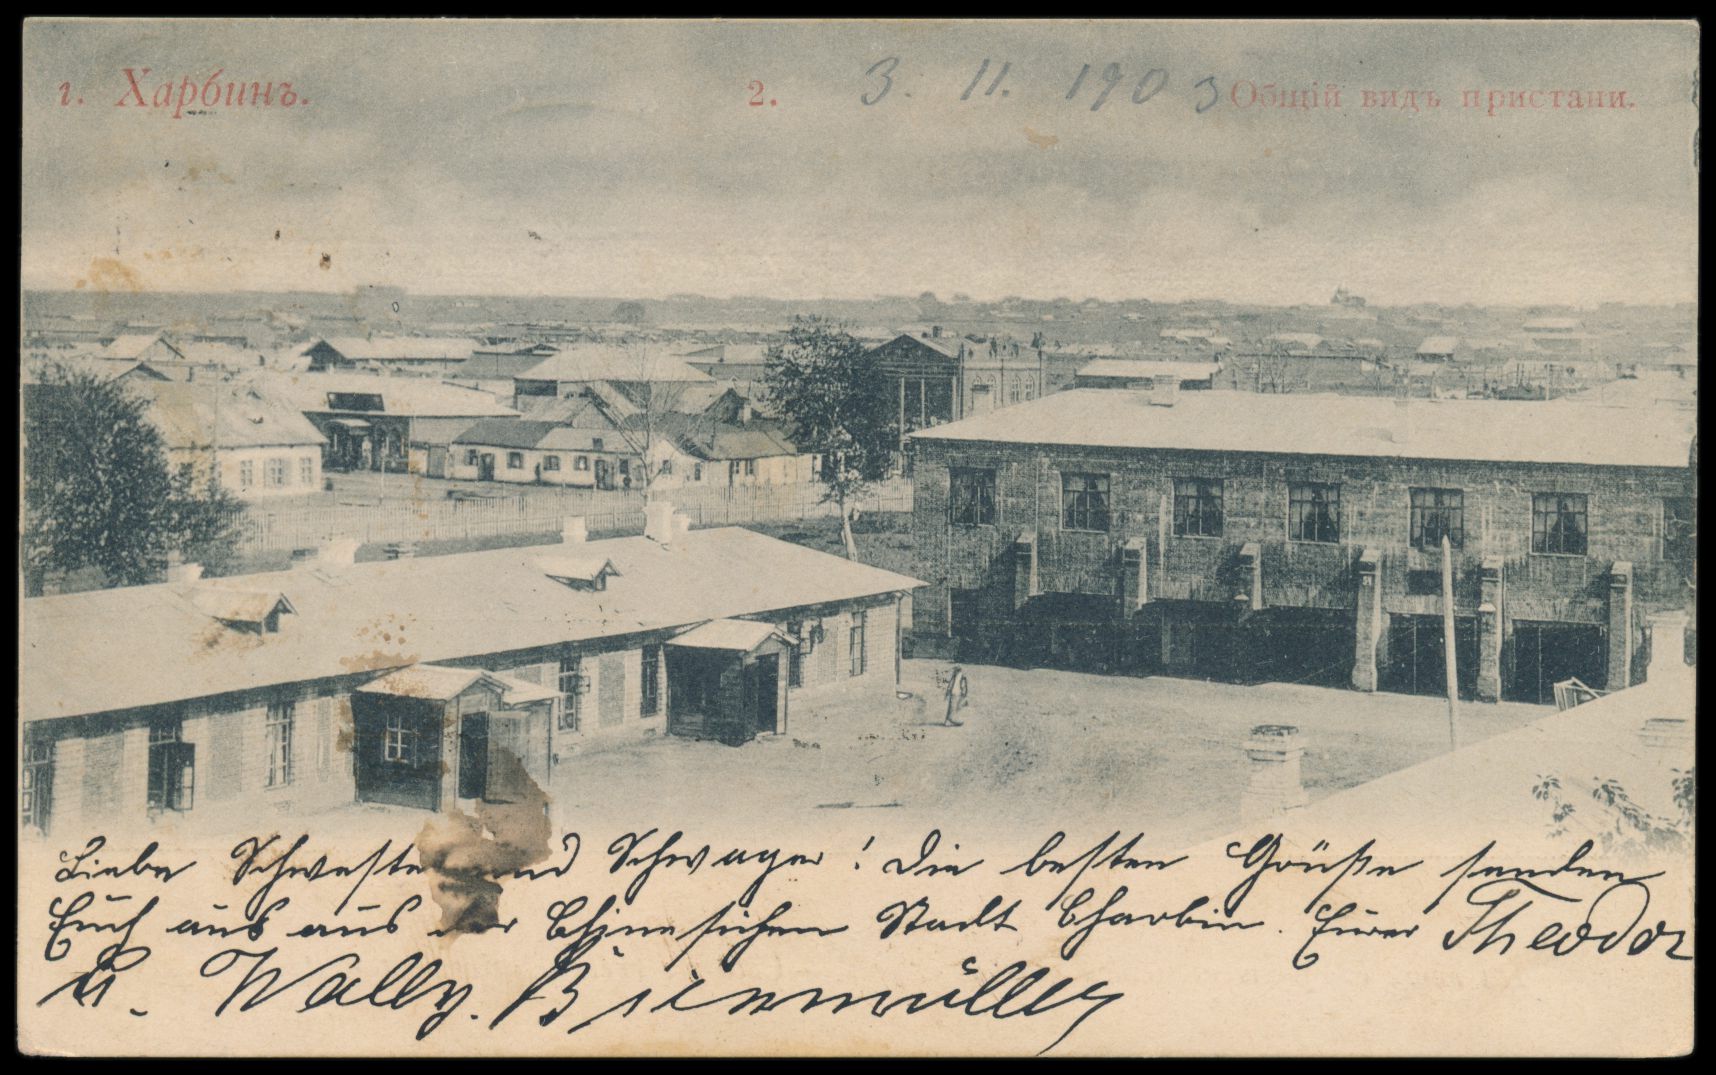 1. Харбинъ. 2. 3. 11. 1903 Общій видъ пристани.
Liebe Schwester und Schwager! Die besten Grüße senden
Euch aus aus der Chinesichen Stadt Charbin. Eurer Theodor
u. Wally. Bienmüller